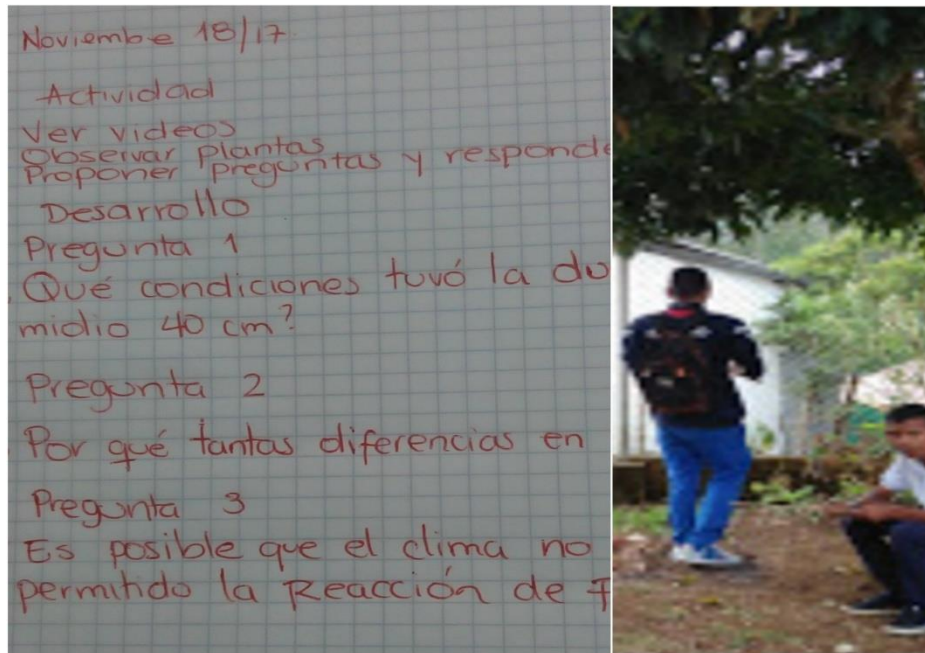 Noviembe 18/17.
Actividad
Ver videos
Observar plantas
Proponer preguntas y responde
Desarrollo
Pregunta 1
Qué condiciones tuvó la du
midio 40 cm?
Pregunta 2
Por qué tantas diferencias en
Pregunta 3
Es posible que el clima no
permitido la Reacción de f